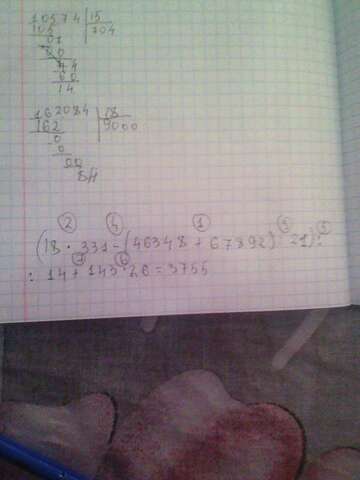 10574 | 15
105 | 704
07
00
74
60
14
162084 | 18
162 | 9000
0
0
00
84
② ④ ① ③ ⑤
(18 · 331 - (46348 + 67892) : 21) :
⑦ ⑥
: 14 + 143 · 26 = 3755